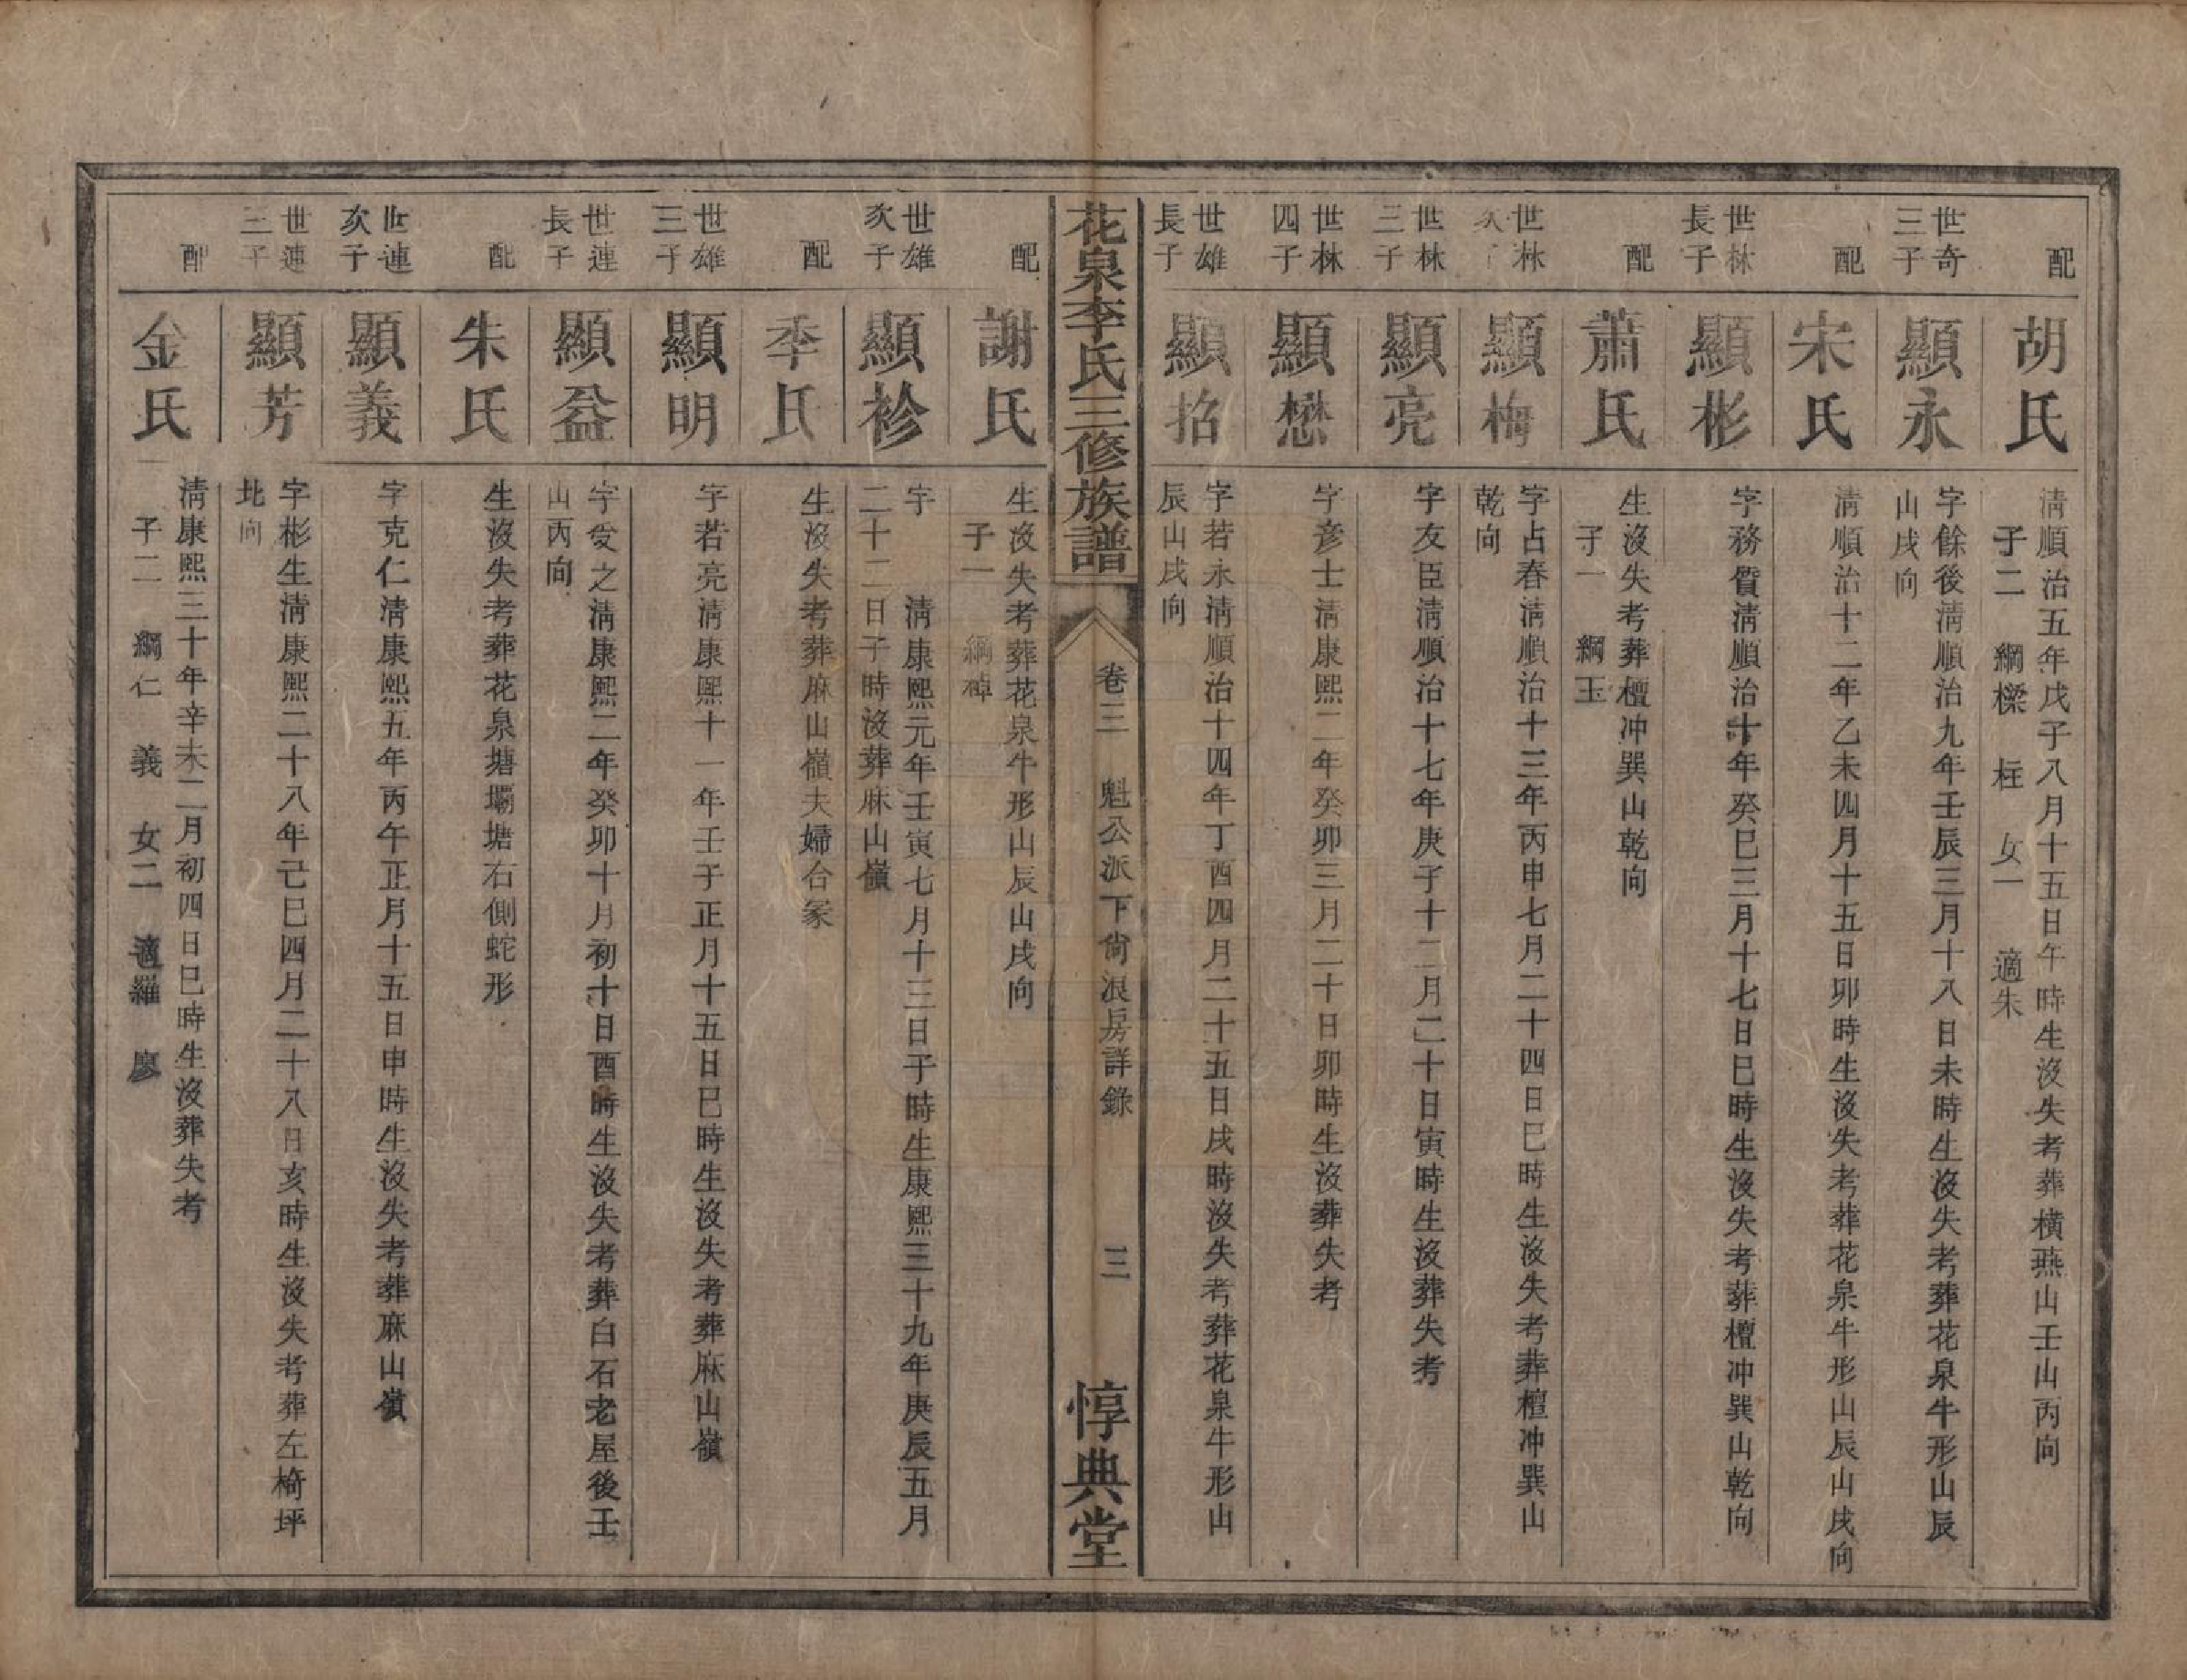 配
胡氏
淸順治五年戊子八月十五日午時生沒失考葬橫燕山壬山丙向
子二 綱樑 柱 女一 適朱
世奇三子
顯永
字餘後淸順治九年壬辰三月十八日未時生沒失考葬花泉牛形山辰
山戌向
配
宋氏
淸順治十二年乙未四月十五日卯時生沒失考葬花泉牛形山辰山戌向
世林長子
顯彬
字務質淸順治十年癸巳三月十七日巳時生沒失考葬檀冲巽山乾向
配
蕭氏
生沒失考葬檀冲巽山乾向
子一 綱玉
世林次子
顯梅
字占春淸順治十三年丙申七月二十四日巳時生沒失考葬檀冲巽山
乾向
世林三子
顯亮
字友臣淸順治十七年庚子十二月二十日寅時生沒葬失考
世林四子
顯懋
字彥士淸康熙二年癸卯三月二十日卯時生沒葬失考
世雄長子
顯招
字若永淸順治十四年丁酉四月二十五日戌時沒失考葬花泉牛形山
辰山戌向
花泉李氏三修族譜
卷三 魁公派下尙浪房詳錄 三
惇典堂
配
謝氏
生沒失考葬花泉牛形山辰山戌向
子一 綱禎
世雄次子
顯袗
字 淸康熙元年壬寅七月十三日子時生康熙三十九年庚辰五月
二十二日子時沒葬麻山嶺
配
李氏
生沒失考葬麻山嶺夫婦合冢
世雄三子
顯明
字若亮淸康熙十一年壬子正月十五日巳時生沒失考葬麻山嶺
世連長子
顯益
字受之淸康熙二年癸卯十月初十日酉時生沒失考葬白石老屋後壬
山丙向
配
朱氏
生沒失考葬花泉塘壩塘右側蛇形
世連次子
顯義
字克仁淸康熙五年丙午正月十五日申時生沒失考葬麻山嶺
世連三子
顯芳
字彬生淸康熙二十八年己巳四月二十八日亥時生沒失考葬左椅坪
北向
配
金氏
淸康熙三十年辛未二月初四日巳時生沒葬失考
子二 綱仁 義 女二 適羅 廖